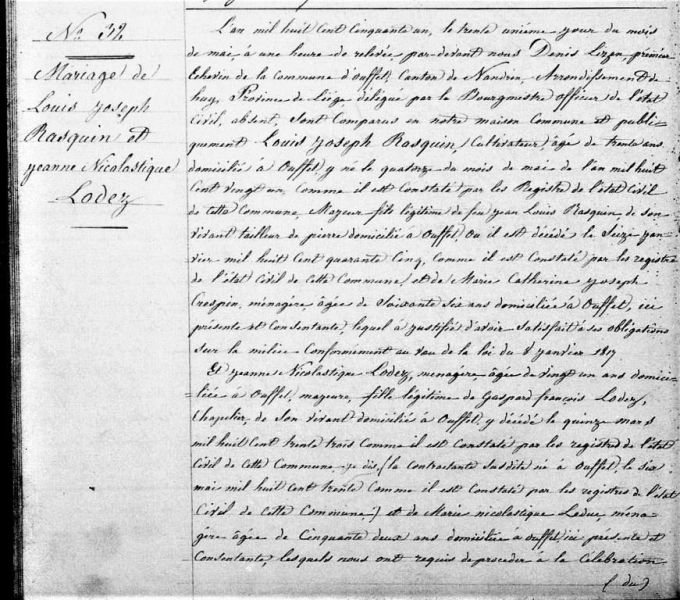 N.º 32
Mariage de
Louis Joseph
Rasquin et
Jeanne Nicolastique
Lodez
L'an mil huit cent cinquante un, le trente unième jour du mois
de mai, à une heure de relevée, par-devant nous Denis Lizen, premier
Echevin de la commune d'ouffet, Canton de Nandrin, Arrondissement de
huy, Province de Liége délégué par le Bourgmestre officier de l'état
Civil, absent, sont comparus en notre maison Commune et publi-
quement Louis Joseph Rasquin, Cultivateur, âgé de trente ans
domicilié à Ouffet, y né le quatorze du mois de mai de l'an mil huit
Cent vingt un, Comme il est Constaté par les Registres de l'état Civil
de Cette Commune, Majeur fils légitime de feu Jean Louis Rasquin de son
vivant tailleur de pierre domicilié à Ouffet, où il est décédé le Seize Jan-
vier mil huit Cent quarante Cinq, Comme il est Constaté par les registres
de l'état Civil de Cette Commune, et de Marie Catherine Joseph
Crespin, ménagère, âgée de Soixante six ans domiciliée à Ouffet, ici
présente et Consentante, lequel a justifié d'avoir satisfait à ses obligations
sur la milice Conformément au vœu de la loi du 8 Janvier 1817
Et Jeanne Nicolastique Lodez, menagère, âgée de vingt un ans domici-
liée à Ouffet, majeure, fille légitime de Gaspard françois Lodez,
Chapelier, de Son vivant domicilié à Ouffet, y décédé le quinze mars
mil huit Cent trente trois Comme il est Constaté par les registres de l'état
Civil de Cette Commune, je dis, (la Contractante Susdite né à Ouffet, le six
mai mil huit Cent trente Comme il est Constaté par les registres de l'état
Civil de Cette Commune;) et de Marie nicolastique Leduc, ména-
gère âgée de Cinquante deux ans domiciliée à ouffet, ici présente et
Consentante, lesquels nous ont requis de procéder à la Célébration
(du)